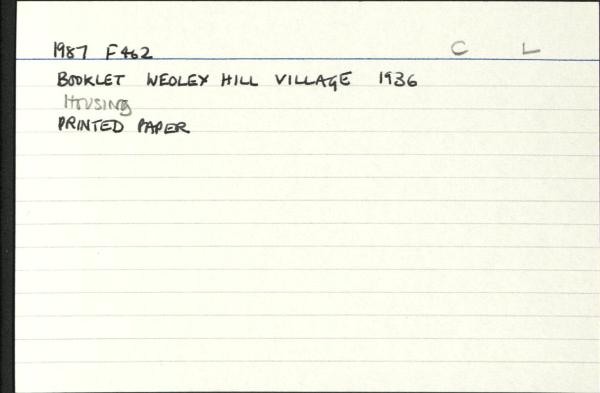 1987 F462 C L
BOOKLET WEOLEY HILL VILLAGE 1936
HOUSING
PRINTED PAPER